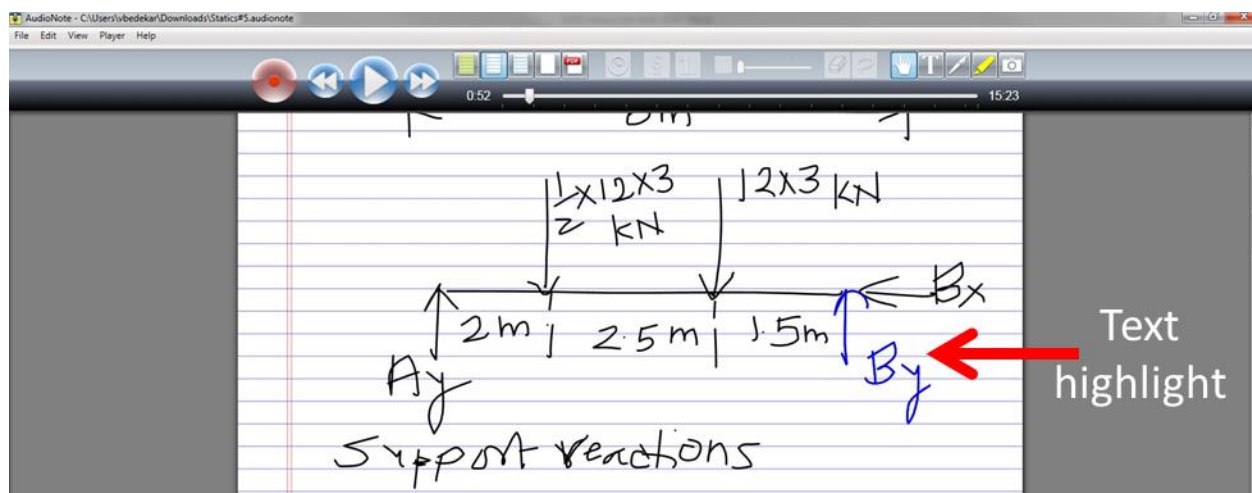 AudioNote - C:\Users\vbedekar\Downloads\Statics#5.audionote
File Edit View Player Help
PDF
T
0:52
15:23
1/2 x 12 x 3
kN
12 x 3 kN
Bx
2m
2.5m
1.5m
Ay
By
Text
highlight
Support reactions